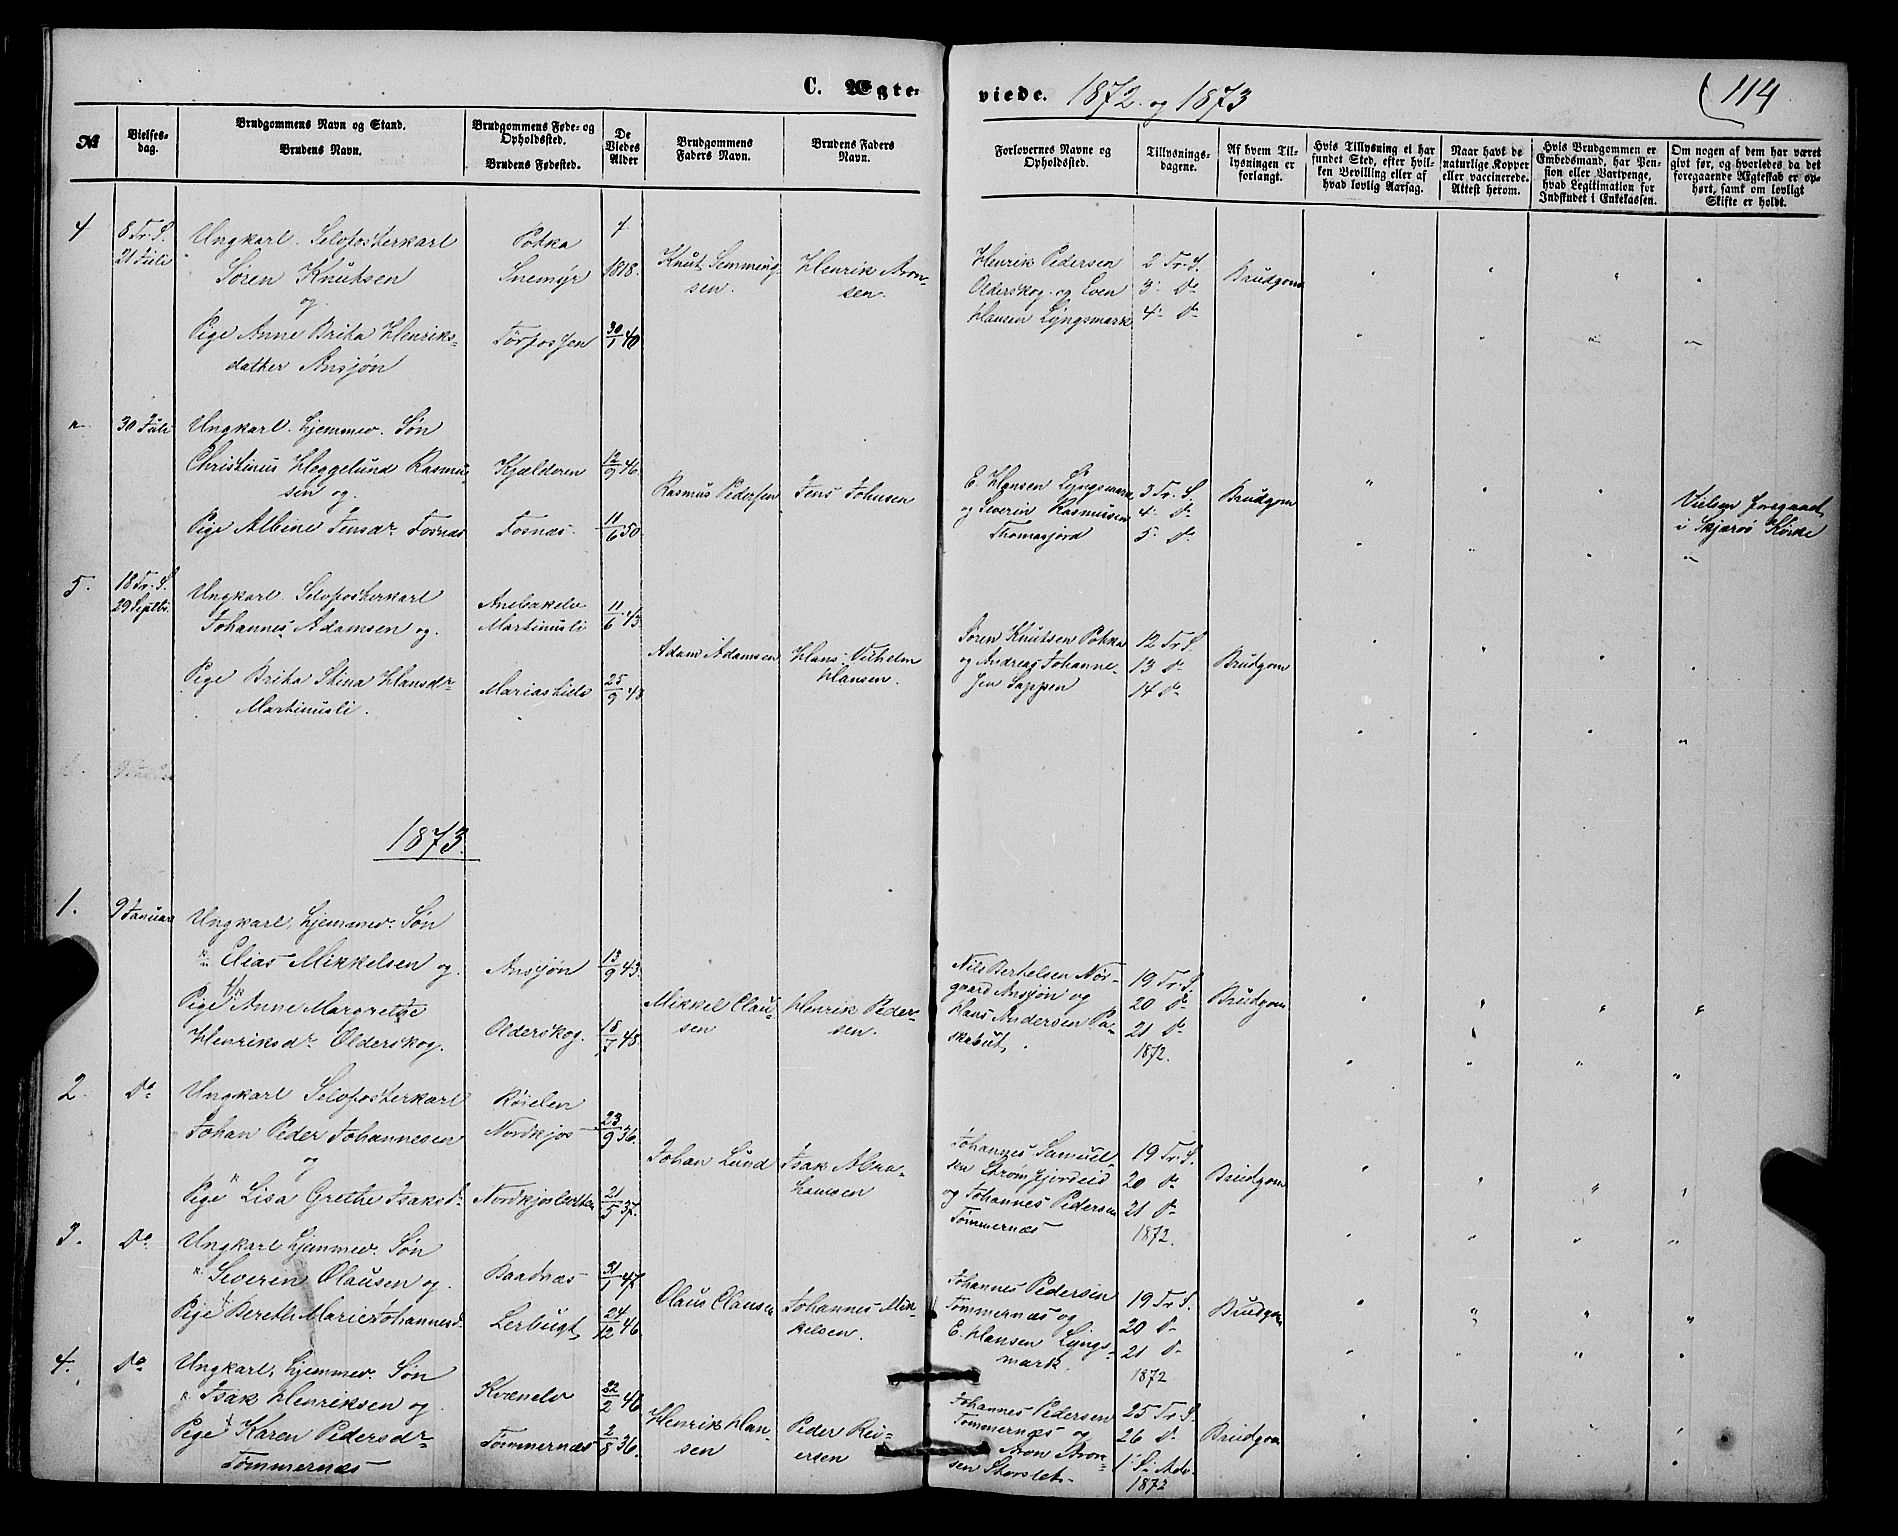 C. Ægte-
viede. 1872. og 1873
114
No
Vielses-
dag.
Brudgommens Navn og Stand.
Brudens Navn.
Brudgommens Føde- og
Opholdssted.
Brudens Fødested.
De
Viedes
Alder
Brudgommens
Faders Navn.
Brudens Faders
Navn.
Forlovernes Navne og
Opholdssted.
Tillysnings-
dagene.
Af hvem Til-
lysningen er
forlangt.
Hvis Tillysning ei har
fundet Sted, efter hvil-
ken Bevilling eller af
hvad lovlig Aarsag.
Naar havt de
naturlige Kopper
eller vaccinerede.
Attest herom.
Hvis Brudgommen er
Embedsmand, har Pen-
sion eller Vartpenge,
hvad Legitimation for
Indskudet i Enkekassen.
Om nogen af dem har været
givt før, og hvorledes da det
foregaaende Ægteskab er op-
hørt, samt om lovligt
Skifte er holdt.
4
8 Tr. S.
21 Juli
Ungkarl. Selvfosterkarl
Sören Knutsen
og
Pige Anne Brita Henriks-
datter Ansjön
Potka
Snemyr
Törfosjen
1818.
30/1 40
Knut Semming-
sen.
Henrik Aron-
sen.
Henrik Pedersen
Olderskog. og Even
Hansen Lyngsmark
2 Tr. S.
3. Do
4. Do
Brudgom
30 Juli
Ungkarl. hjemmev. Søn
Christinus Heggelund Rasmus-
sen og.
Pige Albine Jensdr Fosnæs
Kjælderen
Fosnæs.
12/9 46.
11/6 50.
Rasmus Pedersen
Jens Johnsen
E. Hansen Lyngsmark
og Severin Rasmussen
Thomasjord
3 Tr. S.
4. Do
5. Do
Brudgom
Vielsen foregaaet
i Skjærvö Kirke
5.
18 Tr. S.
29 Septbr.
Ungkarl. Selvfosterkarl
Johannes Adamsen og.
Pige Brita Stina Hansdr
Martinusli.
Anebakelv
Martinusli
Mariashide
11/6 43.
25/9 48
Adam Adamsen
Hans Vilhelm
Hansen.
Sören Knutsen Potka
og Andreas Johanne-
sen Sappen
12 Tr. S.
13 Do
14 Do
Brudgom
1873.
1.
9 Januar
Ungkarl. hjemmev. Søn
Elias Mikkelsen og.
Pige Anne Margrethe
Henriksdr Olderskog.
Ansjön
Olderskog.
13/9 43.
18/7 48.
Mikkel Clau-
sen
Henrik Peder-
sen.
Nils Berthelsen Nor-
gaard Ansjön og
Hans Andersen Pa-
skabut.
19 Tr. S.
20 Do
21 Do
1872.
Brudgom
2.
Do
Ungkarl Selvfosterkarl
Johan Peder Johannesen
og
Pige Lisa Grethe Isaksdr
Röielen
Nordkjos
Nordkjosbotten
23/9 36.
21/5 37.
Johan Lund
Isak Abra-
hamsen
Johannes Samuel-
sen Strömfjordeid
og Johannes Pedersen
Tömmernæs
19 Tr. S.
20 Do
21 Do
1872.
Brudgom
3.
Do
Ungkarl hjemmev. Søn
Severin Olausen og.
Pige Bereth Marie Johannesd
Baadnæs
Lerbugt
31/1 47.
24/12 46
Olaus Clausen
Johannes Mik-
kelsen.
Johannes Pedersen
Tömmernæs og
E. Hansen Lyngs-
mark.
19 Tr. S.
20 Do
21 Do
1872
Brudgom
4.
Do
Ungkarl. hjemmev. Søn
Isak Henriksen og
Pige Karen Pedersdr
Tömmernæs
Kvænelv
Tömmernæs
22/2 46
2/8 36.
Henrik Han-
sen
Peder Rei-
ersen
Johannes Pedersen
Tömmernæs og
Aron Aron-
sen Storslet.
25 Tr. S.
26 Do
1 S. i Adv.
1872
Brudgom